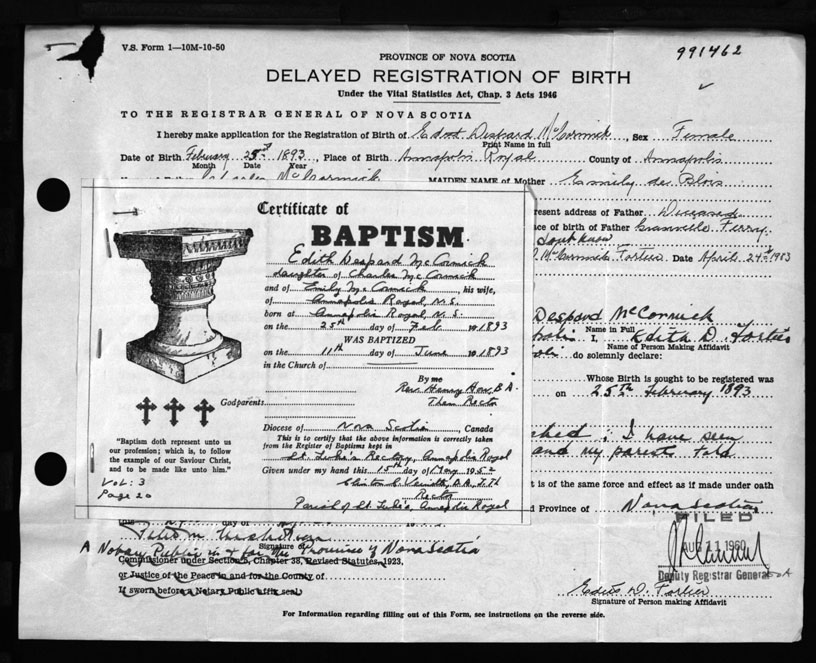 V.S. Form 1—10M-10-50
991462
PROVINCE OF NOVA SCOTIA
DELAYED REGISTRATION OF BIRTH
Under the Vital Statistics Act, Chap. 3 Acts 1946
TO THE REGISTRAR GENERAL OF NOVA SCOTIA
I hereby make application for the Registration of Birth of Edith Despard McCormick, Sex Female
Print Name in full
Date of Birth February 25th 1893, Place of Birth Annapolis Royal County of Annapolis
Month Date Year
Charles McCormick MAIDEN NAME of Mother Emily de Blois
resent address of Father Deceased
ace of birth of Father Granville Ferry
McCormick Fortier Date April 24th
Certificate of
BAPTISM
Edith Despard McCormick
daughter of Charles McCormick
and of Emily McCormick, his wife,
of Annapolis Royal, N.S.
born at Annapolis Royal, N.S.
on the 25th day of Feb. 1893
WAS BAPTIZED
on the 11th day of June 1893
in the Church of
By me
Rev. Henry How B.A.
Then Rector
Godparents
Diocese of Nova Scotia, Canada
This is to certify that the above information is correctly taken
from the Register of Baptisms kept in
St. Luke's Rectory, Annapolis Royal
Given under my hand this 15th day of May 1952
Rector
Parish of St. Luke's, Annapolis Royal
"Baptism doth represent unto us
our profession; which is, to follow
the example of our Saviour Christ,
and to be made like unto him."
Vol: 3
Page 20
Despard McCormick
Name in Full
I, Edith D. Fortier
Name of Person Making Affidavit
do solemnly declare:
Whose Birth is sought to be registered was
on 25th February 1893
I have seen
and my parents told
it is of the same force and effect as if made under oath
d Province of Nova Scotia
FILED
AUG 1960
Deputy Registrar General
day of
Signature of
A Notary Public in & for the Province of Nova Scotia
Commissioner under Section 5, Chapter 38, Revised Statutes, 1923,
or Justice of the Peace in and for the County of
If sworn before a Notary Public affix seal
Edith D. Fortier
Signature of Person making Affidavit
For Information regarding filling out of this Form, see instructions on the reverse side.